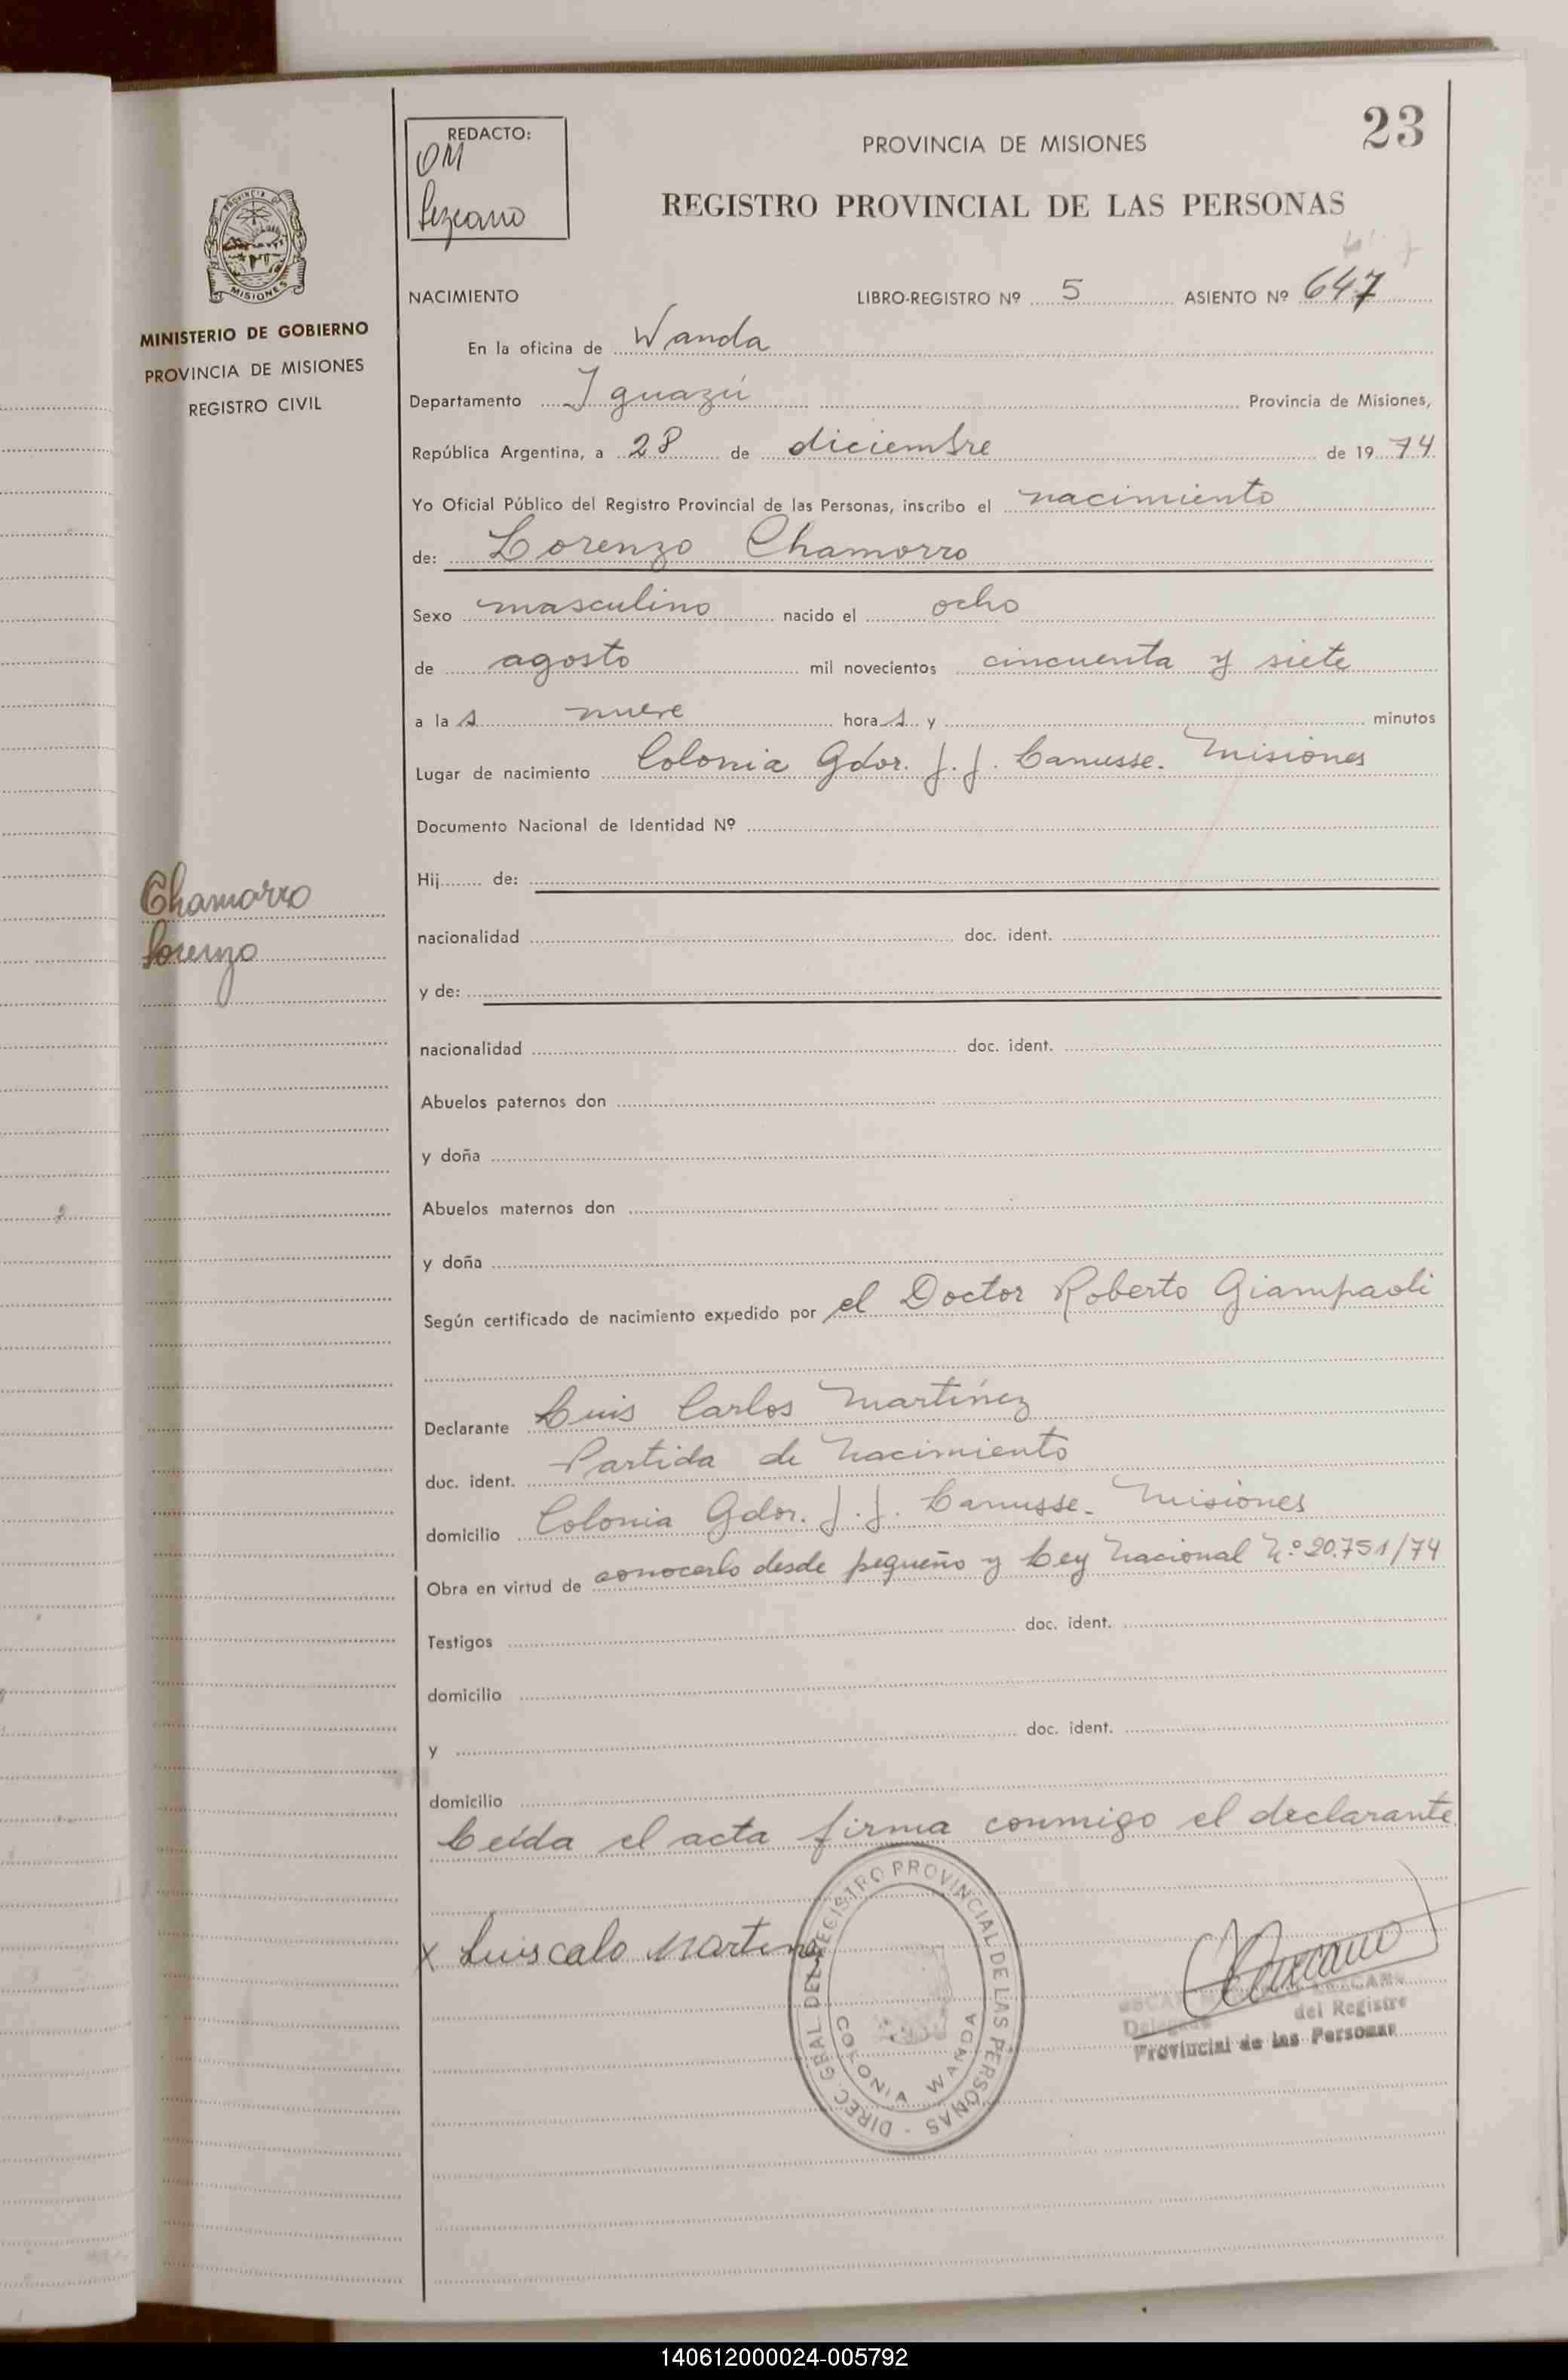 23
REDACTO:
OM
Lezcano
PROVINCIA DE MISIONES
REGISTRO PROVINCIAL DE LAS PERSONAS
PROVINCIA D
MISIONES
MINISTERIO DE GOBIERNO
PROVINCIA DE MISIONES
REGISTRO CIVIL
NACIMIENTO LIBRO-REGISTRO Nº 5 ASIENTO Nº 647
En la oficina de Wanda
Departamento Iguazú Provincia de Misiones,
República Argentina, a 28 de diciembre de 1974
Yo Oficial Público del Registro Provincial de las Personas, inscribo el nacimiento
de: Lorenzo Chamorro
Sexo masculino nacido el ocho
de agosto mil novecientos cincuenta y siete
a las nueve horas y minutos
Lugar de nacimiento Colonia Gdor. J. J. Lanusse. Misiones
Documento Nacional de Identidad Nº
Chamorro
Lorenzo
Hij de:
nacionalidad doc. ident.
y de:
nacionalidad doc. ident.
Abuelos paternos don
y doña
Abuelos maternos don
y doña
Según certificado de nacimiento expedido por el Doctor Roberto Giampaoli
Declarante Luis Carlos Martínez
doc. ident. Partida de Nacimiento
domicilio Colonia Gdor. J. J. Lanusse- Misiones
Obra en virtud de conocerlo desde pequeño y Ley Nacional Nº 20.751/74
Testigos doc. ident.
domicilio
y doc. ident.
domicilio
Leída el acta firma conmigo el declarante
x Luis calo Martine
DIREC. GRAL. DEL REGISTRO PROVINCIAL DE LAS PERSONAS -
COLONIA WANDA
Delegado del Registro
Provincial de las Personas
140612000024-005792